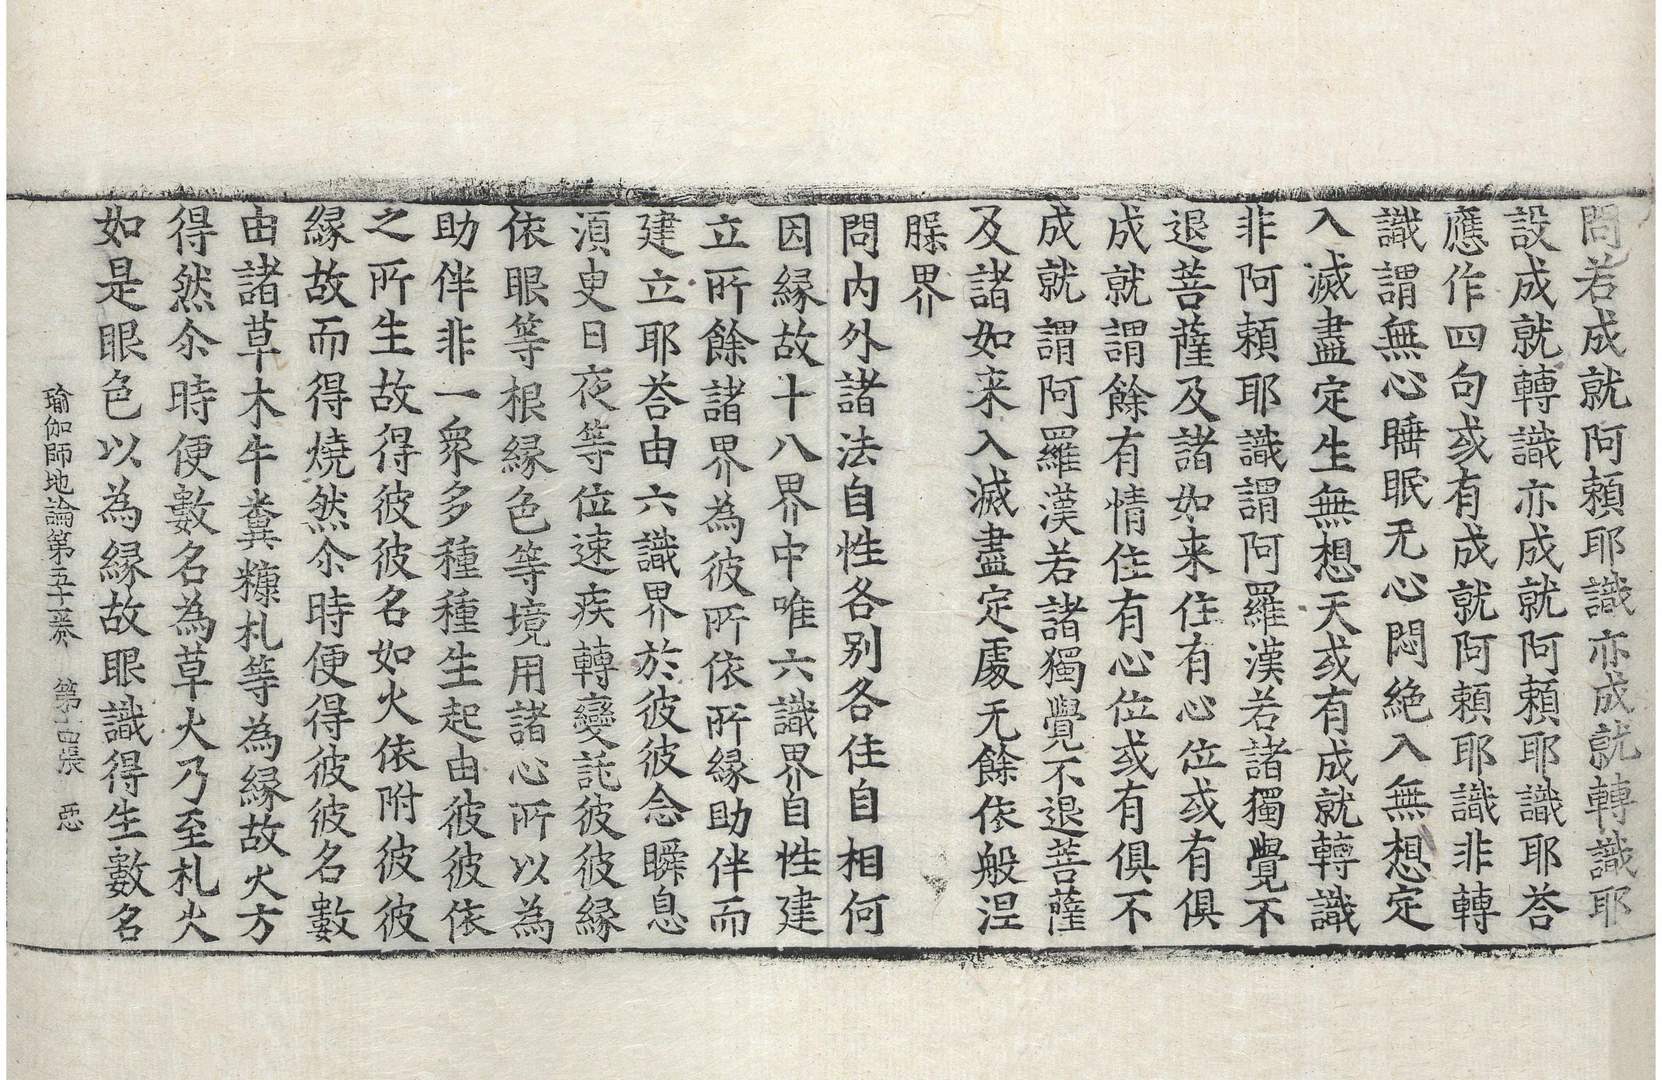 問若成就阿頼耶識亦成就轉識耶
設成就轉識亦成就阿頼耶識耶荅
應作四句或有成就阿頼耶識非轉
識謂無心睡眠无心悶絶入無想定
入滅盡定生無想天或有成就轉識
非阿頼耶識謂阿羅漢若諸獨覺不
退菩薩及諸如来住有心位或有俱
成就謂餘有情住有心位或有俱不
成就謂阿羅漢若諸獨覺不退菩薩
及諸如来入滅盡定處无餘依般涅
槃界
問内外諸法自性各别各住自相何
因縁故十八界中唯六識界自性建
立所餘諸界為彼所依所縁助伴而
建立耶荅由六識界於彼彼念瞬息
湏臾日夜等位速疾轉變託彼彼縁
依眼等根縁色等境用諸心所以為
助伴非一衆多種種生起由彼彼依
之所生故得彼彼名如火依附彼彼
縁故而得燒然尒時便得彼彼名數
由諸草木牛糞糠札等為縁故火方
得然尒時便數名為草火乃至札火
如是眼色以為縁故眼識得生數名
瑜伽師地論第五十一卷　第十四張　惡